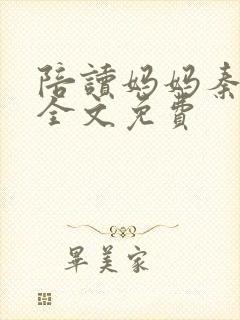 陪讀妈妈秦
全文免費
畢美家